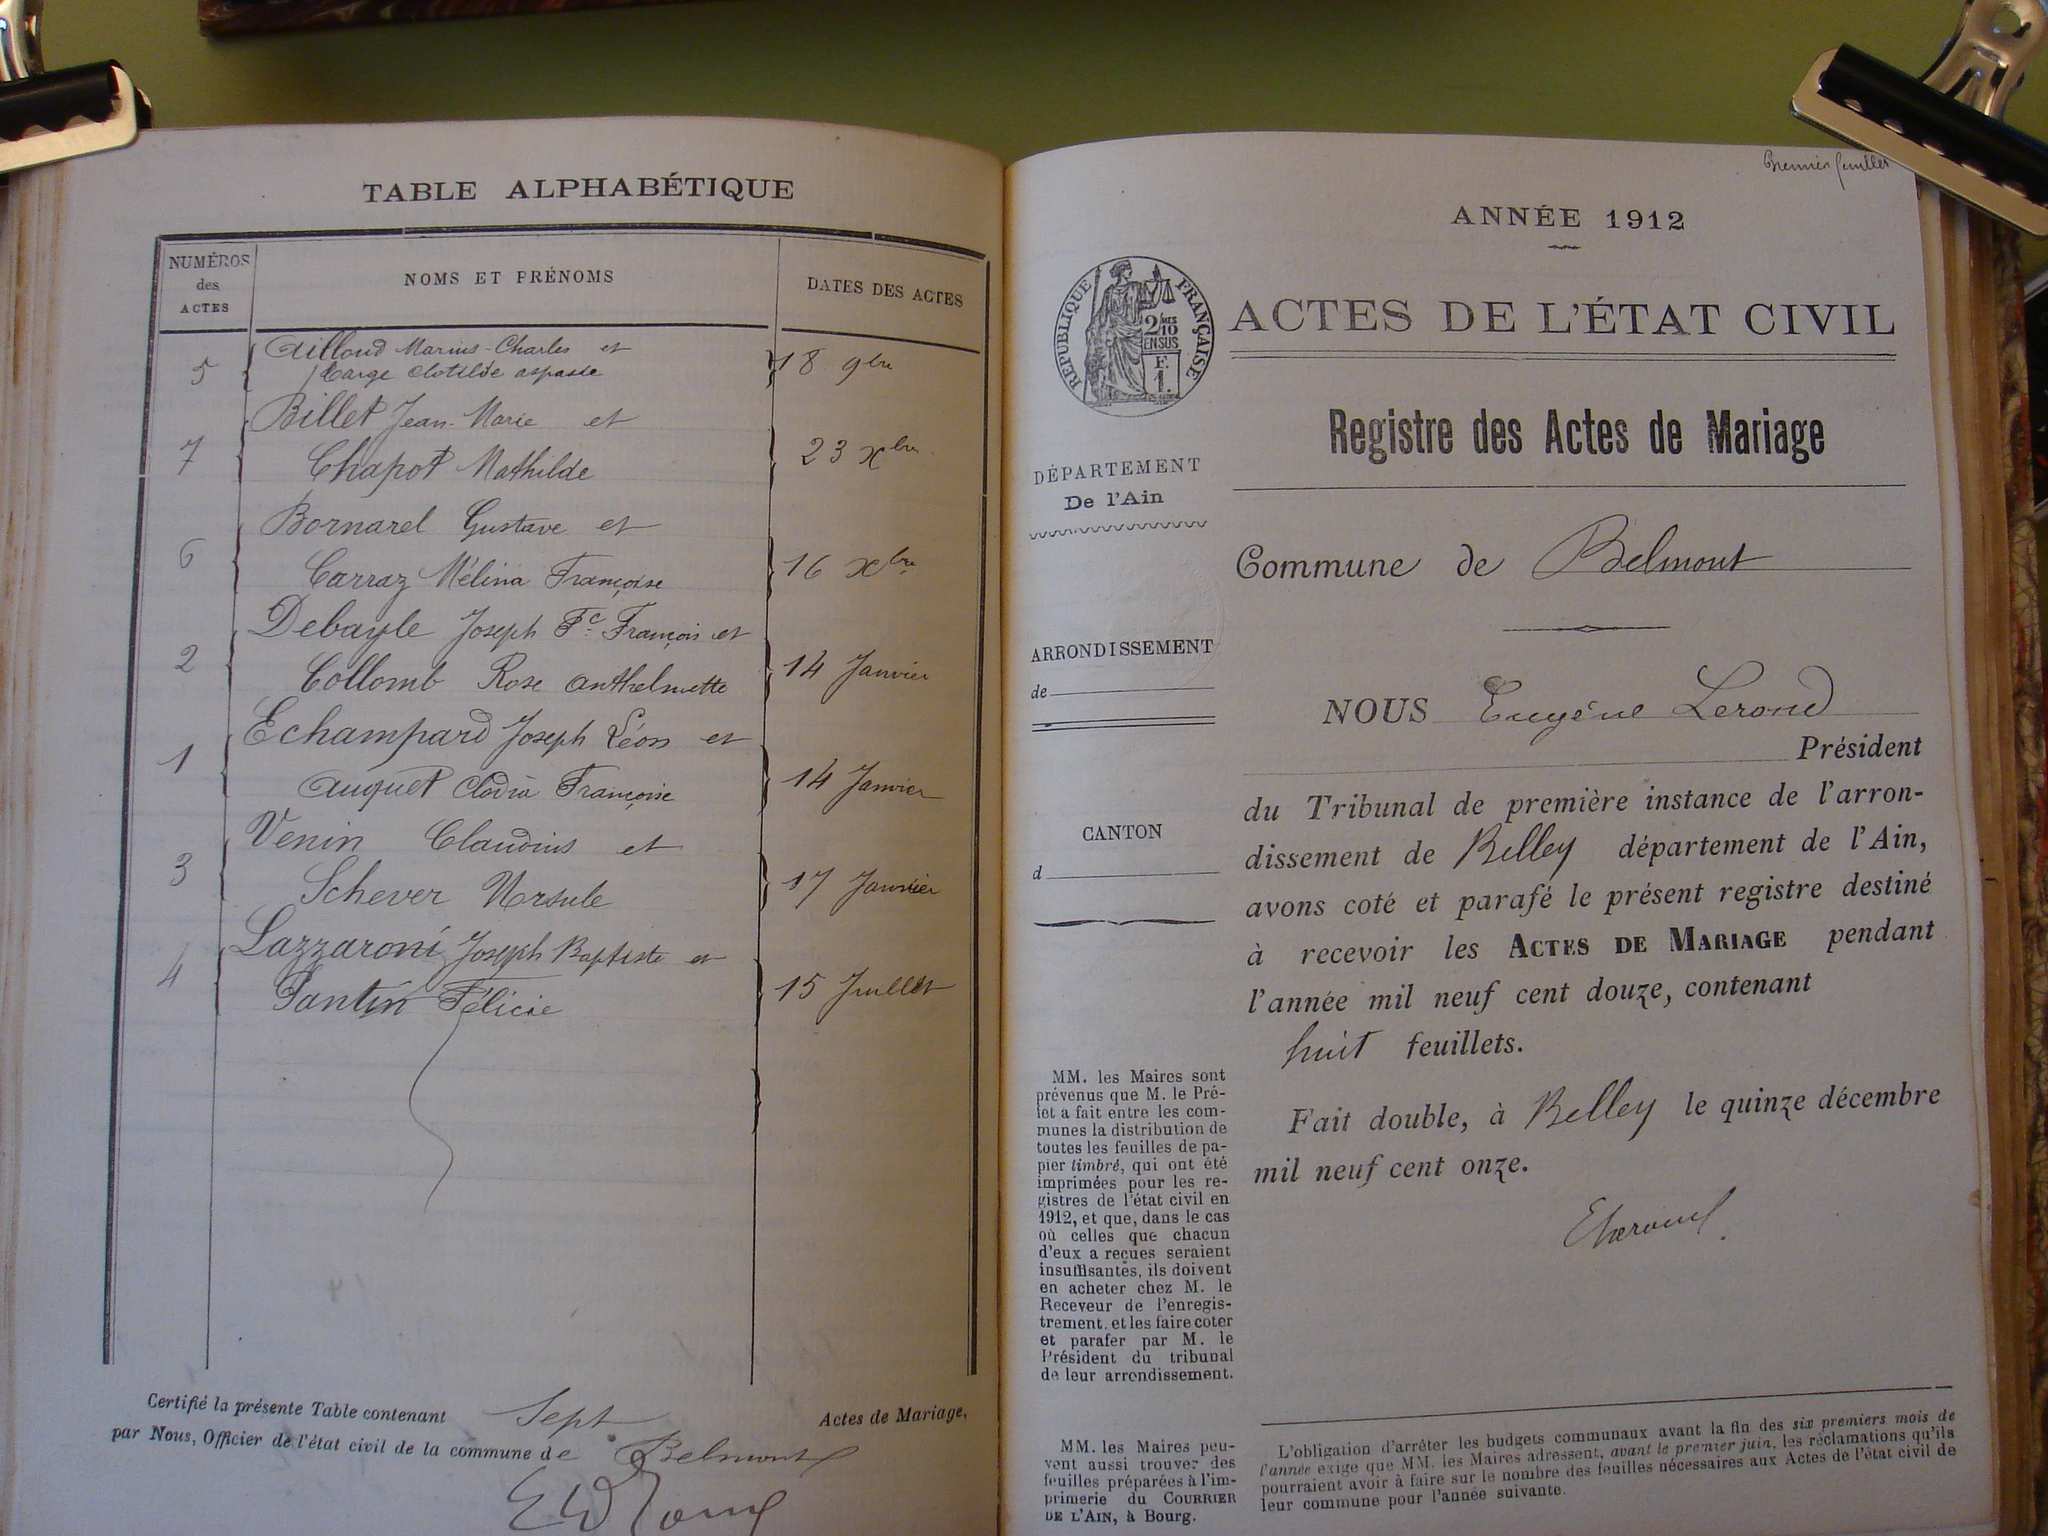 TABLE ALPHABÉTIQUE
NUMÉROS des ACTES
NOMS ET PRÉNOMS
DATES DES ACTES
Ailloud Marius-Charles et
5 18 9bre
Carge Clotilde aspasie
Billet Jean-Marie et
7 Chapot Mathilde 23 xbre
Bornarel Gustave et
6 Carraz Mélina Françoise 16 xbre
Debayle Joseph Fc François et
2 Collomb Rose anthelmette 14 Janvier
Echampard Joseph Léon et
1 auguet Clodia Françoise 14 Janvier
Venin Claudius et
3 Schever Ursule 17 Janvier
Lazzaroni Joseph Baptiste et
4 Pantin Félicie 15 Juillet
Certifié la présente Table contenant Sept Actes de Mariage,
par Nous, Officier de l'état civil de la commune de Belmont
Premier feuillet
ANNÉE 1912
RÉPUBLIQUE FRANÇAISE
2 MES
10
EN SUS
F.
1.
ACTES DE L'ÉTAT CIVIL
Registre des Actes de Mariage
DÉPARTEMENT
De l'Ain
Commune de Belmont
ARRONDISSEMENT
de
CANTON
d
NOUS Eugène Lerond
Président
du Tribunal de première instance de l'arron-
dissement de Belley département de l'Ain,
avons coté et parafé le présent registre destiné
à recevoir les ACTES DE MARIAGE pendant
l'année mil neuf cent douze, contenant
huit feuillets.
Fait double, à Belley le quinze décembre
mil neuf cent onze.
MM. les Maires sont
prévenus que M. le Pré-
fet a fait entre les com-
munes la distribution de
toutes les feuilles de pa-
pier timbré, qui ont été
imprimées pour les re-
gistres de l'état civil en
1912, et que, dans le cas
où celles que chacun
d'eux a reçues seraient
insuffisantes, ils doivent
en acheter chez M. le
Receveur de l'enregis-
trement, et les faire coter
et parafer par M. le
Président du tribunal
de leur arrondissement.
MM. les Maires peu-
vent aussi trouver des
feuilles préparées à l'im-
primerie du COURRIER
DE L'AIN, à Bourg.
L'obligation d'arrêter les budgets communaux avant la fin des six premiers mois de
l'année exige que MM. les Maires adressent, avant le premier juin, les réclamations qu'ils
pourraient avoir à faire sur le nombre des feuilles nécessaires aux Actes de l'état civil de
leur commune pour l'année suivante.